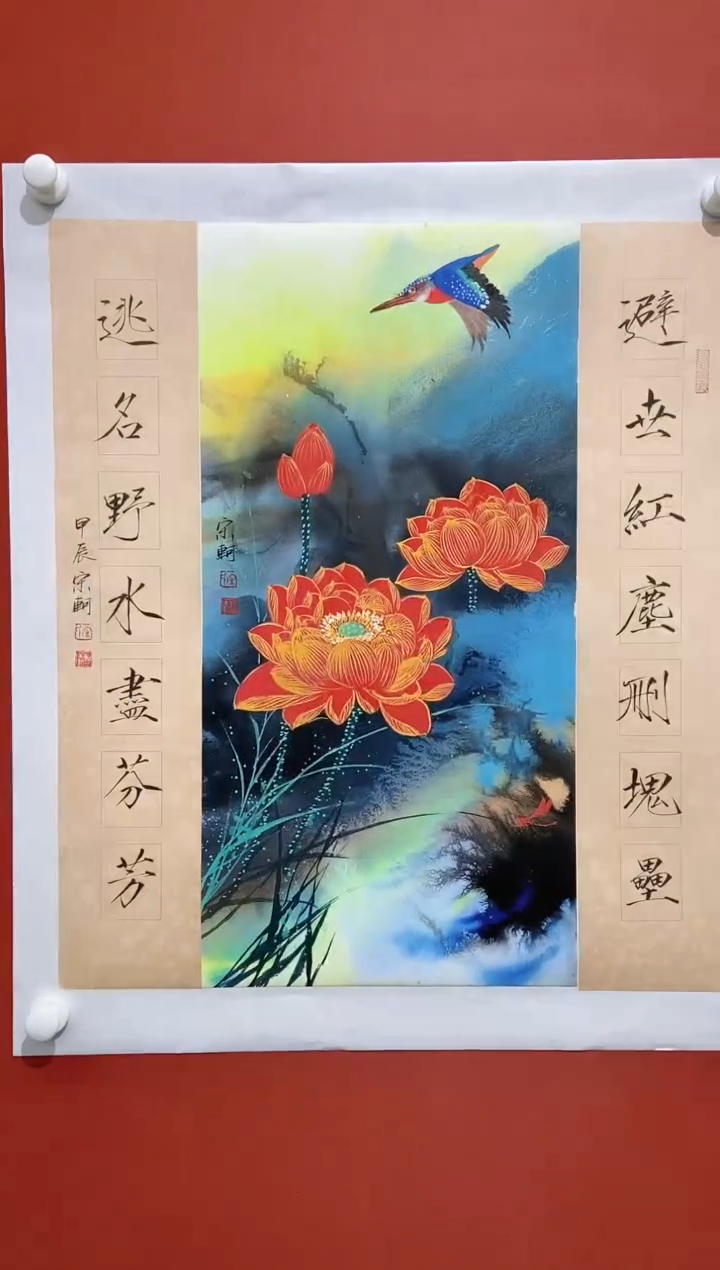 避世紅塵刪塊壘
逃名野水盡芬芳
甲辰宗軻
宗軻